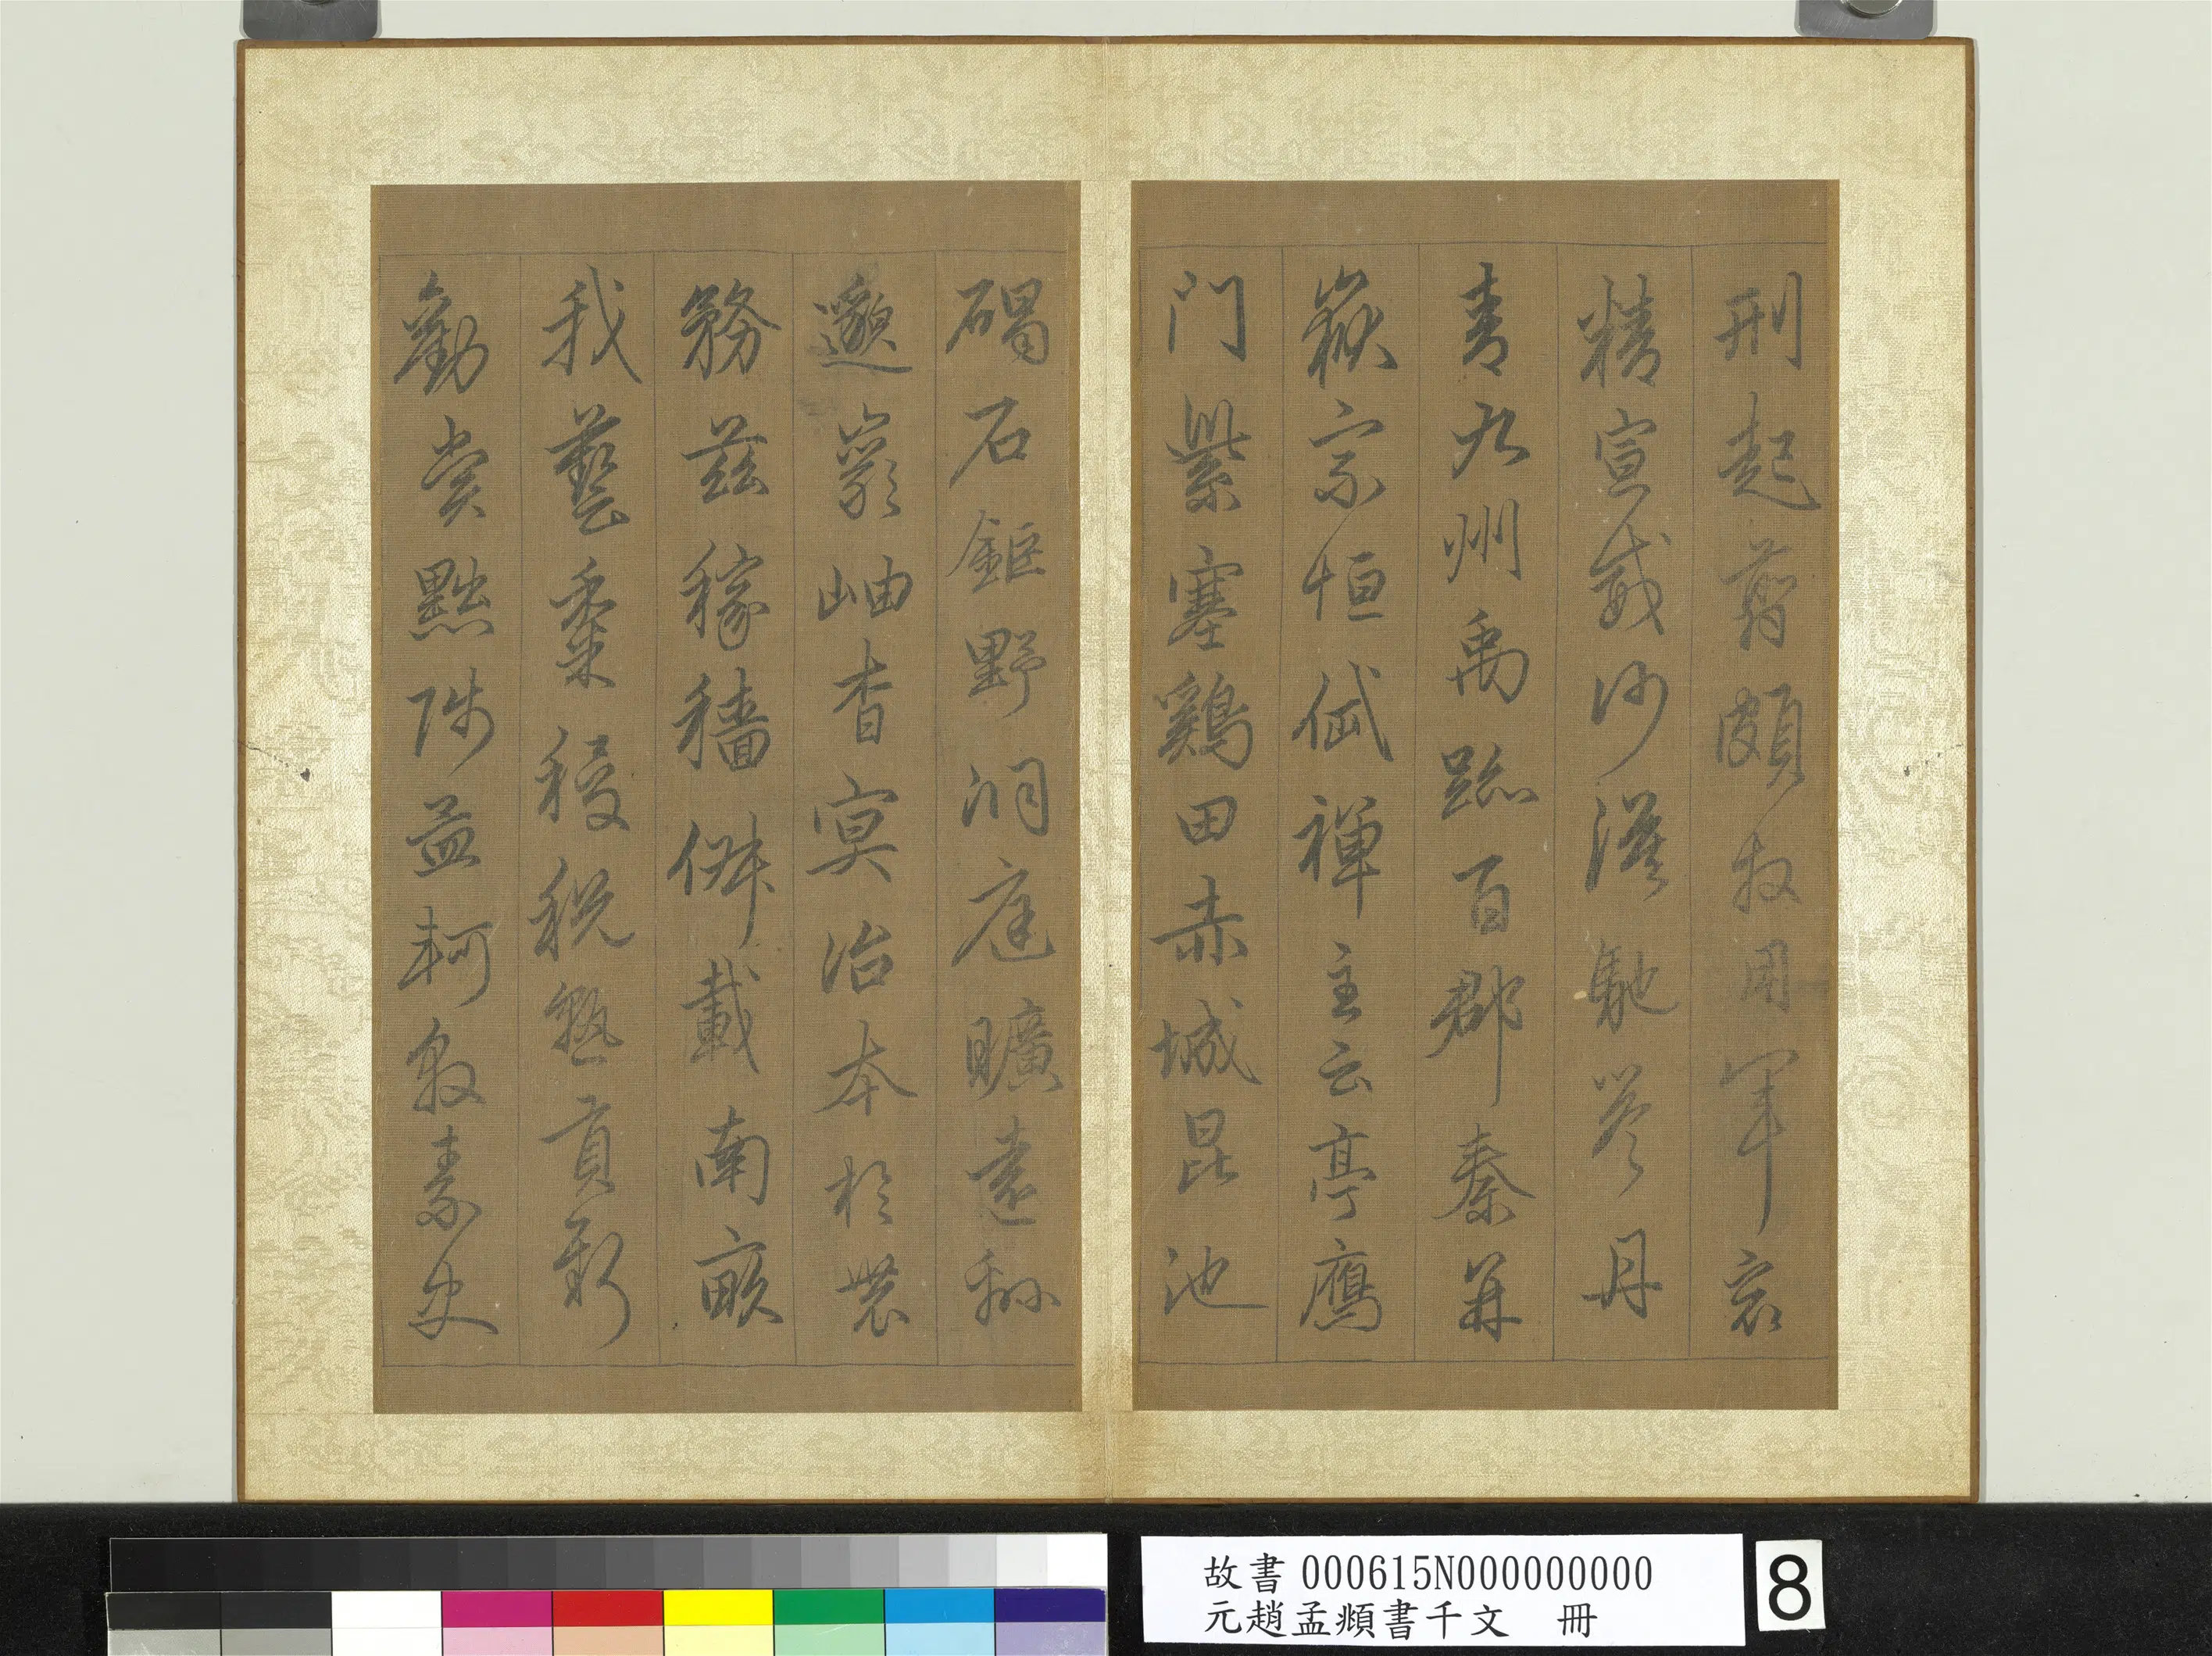 刑起翦頗牧用軍㝡
精宣威沙漠馳譽丹
青九州禹跡百郡秦并
嶽宗恒岱禪主云亭鴈
門紫塞鷄田赤城昆池
碣石鉅野洞庭曠遠緜
邈巖岫杳冥治本於農
務茲稼穡俶載南畝
我藝黍稷稅熟貢新
勸賞黜陟孟軻敦素史
故書 000615N000000000
元趙孟頫書千文 冊
8